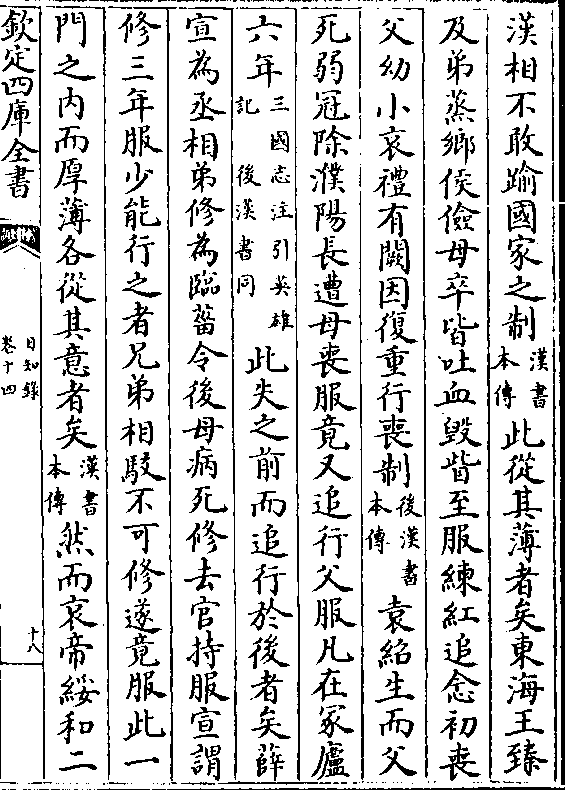 漢相不敢踰國家之制漢書本傳此從其薄者矣東海王臻
及弟蒸鄉侯儉母卒皆吐血毀眥至服練紅追念初喪
父幼小哀禮有闕因復重行喪制後漢書本傳袁紹生而父
死弱冠除濮陽長遭母喪服竟又追行父服凡在冢廬
六年三國志注引英雄記後漢書同此失之前而追行於後者矣薛
宣為丞相弟修為臨菑令後母病死修去官持服宣謂
修三年服少能行之者兄弟相駮不可修遂竟服此一
門之内而厚薄各從其意者矣漢書本傳然而哀帝綏和二
欽定四庫全書
日知錄
卷十四
十八